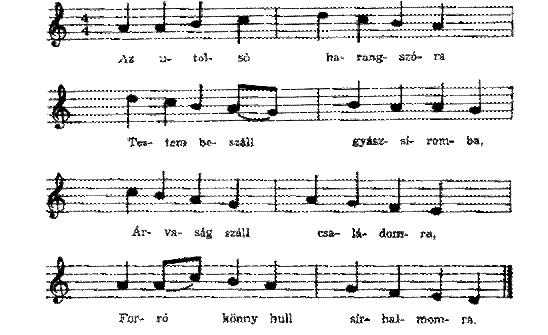 4
4
Az u- tol- só ha- rang- szó- ra
Tes- tem be- száll gyász- sí- rom- ba,
Ár- va- ság száll csa- lá- dom- ra,
For- ró könny hull sír- hal- mom- ra.